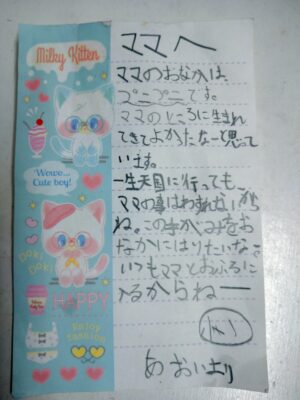 Milky Kitten
Wowe...
Cute boy!
DOKI
DOKI
HAPPY
Enjoy
ママへ
ママのおなかは、
プニプニです。
ママのところに生まれ
てきてよかたなーと思って
います。
一生天国に行っても、
ママの事はわすれないから
ね。この手がみをお
なかにはりたいな。
いつもママとおふろに
入るからねー
小1
あおいより